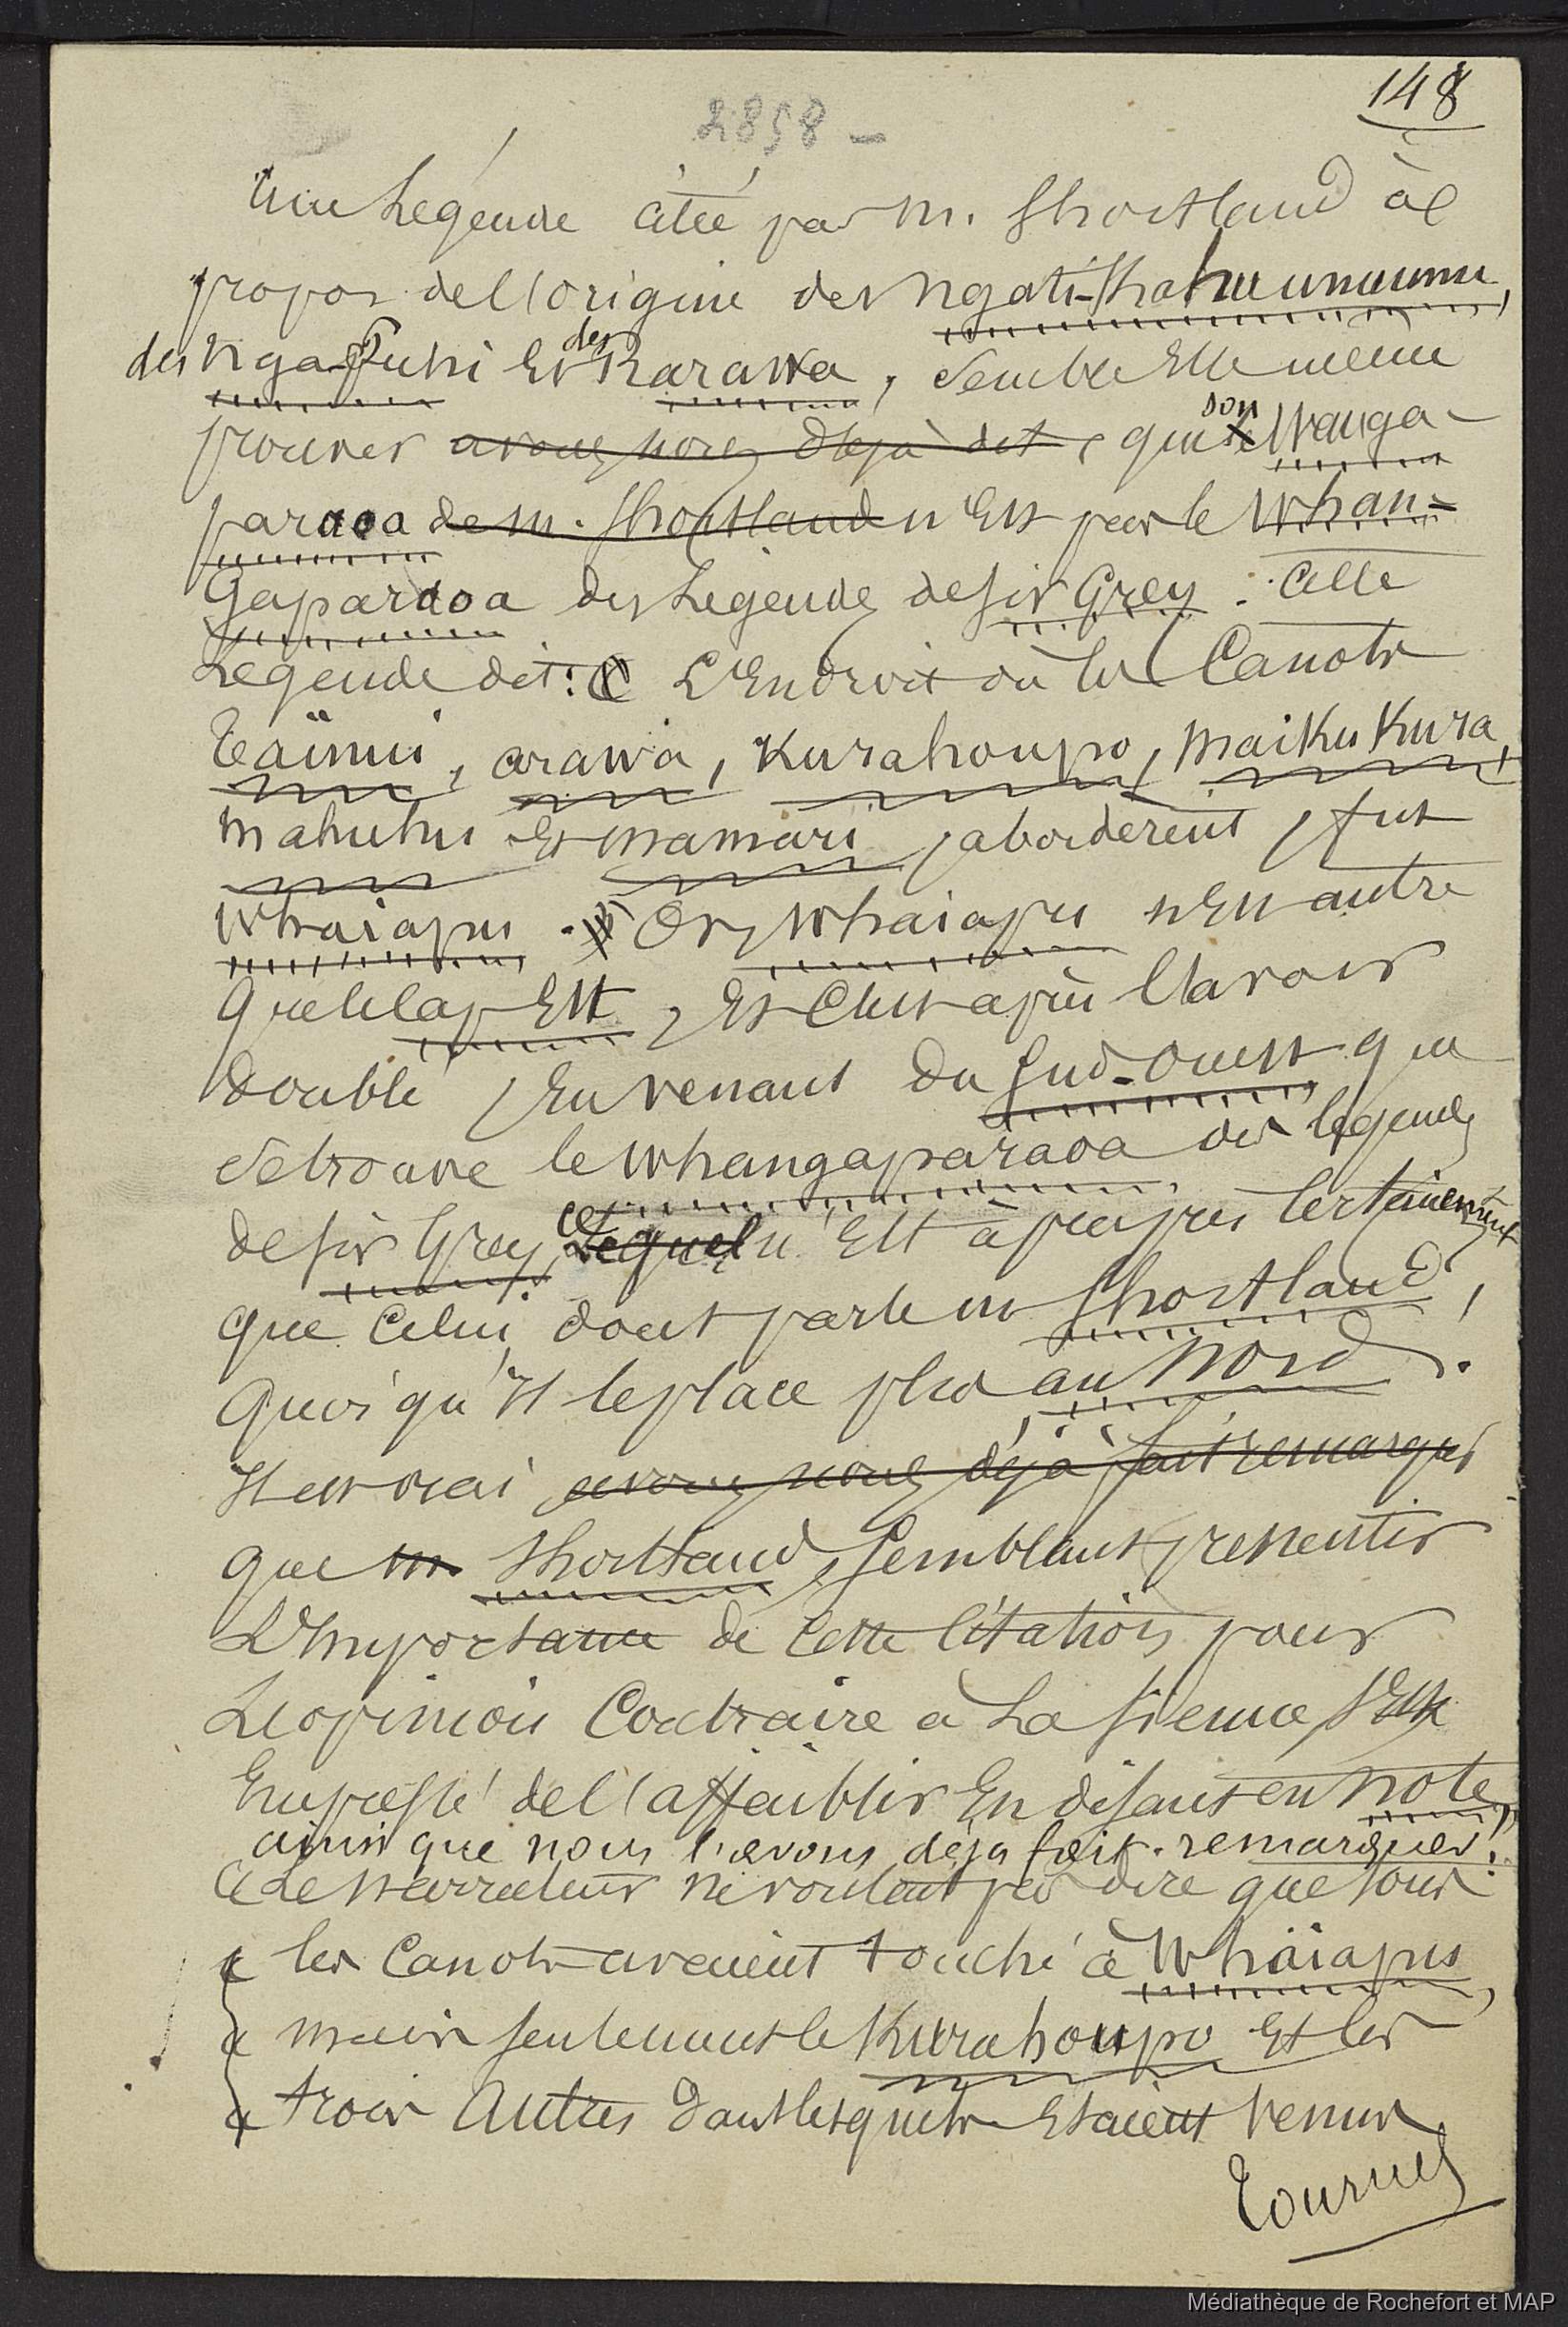 148
2858 -
Une Légende citée par M. Shortland à
propos de l'origine des Ngati-Kahu unuunu,
des Nga-Puhi et des Rarawa, semble elle même
prouver avons nous déjà dit, que son Wanga-
paraoa de M. Shortland n'est pas le Whan-
gaparaoa des Légendes de Sir Grey. Cette
Légende dit: L'Endroit où les Canots
Taïnui, arawa, Kurahoupo, Maikukura,
Mahuhu et Mamari, abordèrent, fut
Whaiapu. Or, Whaiapu n'est autre
que le Cap Est, et c'est après l'avoir
doublé, en venant du Sud-Ouest que
se trouve le Whangaparaoa des légendes
de Sir Grey, lequel cet n'est à peu près certainement
que celui dont parle M Shortland,
quoiqu'il le place plus au Nord.
Il est vrai avons nous déjà fait remarquer
que M. Shortland, semblant pressentir
L'Importance de cette citation pour
L'opinion Contraire à La Sienne s'est
Empressé de l'affaiblir En disant en note,
ainsi que nous l'avons déjà fait remarquer:
« Le Narrateur ne voulait pas dire que tous
« les Canots avaient touché à Whäiapu,
« mais seulement le Kurahoupo et les
« trois Autres dans lesquels Etaient venus
Tournez
Médiathèque de Rochefort et MAP